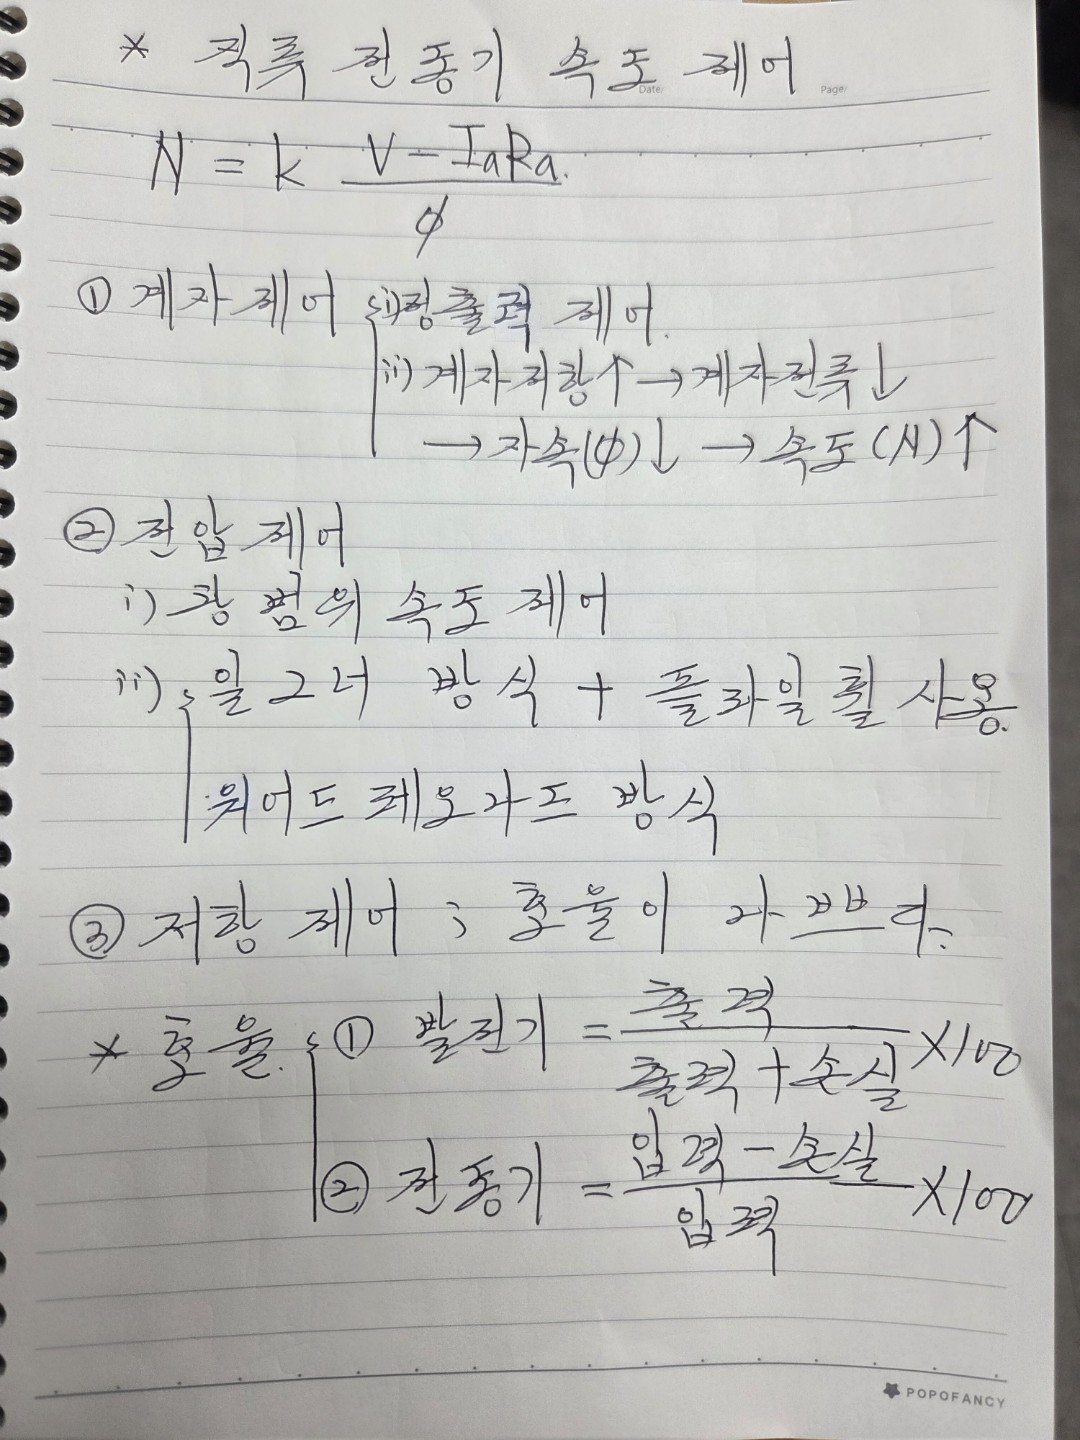 * 직류 전동기 속도 제어
Date:
Page:
N = k (V - IaRa) / ϕ
① 계자제어 { i) 정출력 제어.
ii) 계자저항↑ → 계자전류↓
→ 자속(ϕ)↓ → 속도(N)↑
② 전압제어
i) 광범위 속도 제어
ii) { 일그너 방식 + 플라이휠 사용.
워어드 레오나드 방식
③ 저항 제어 ; 효율이 나쁘다.
* 효율. { ① 발전기 = 출력 / (출력 + 손실) × 100
② 전동기 = (입력 - 손실) / 입력 × 100
POPOFANCY